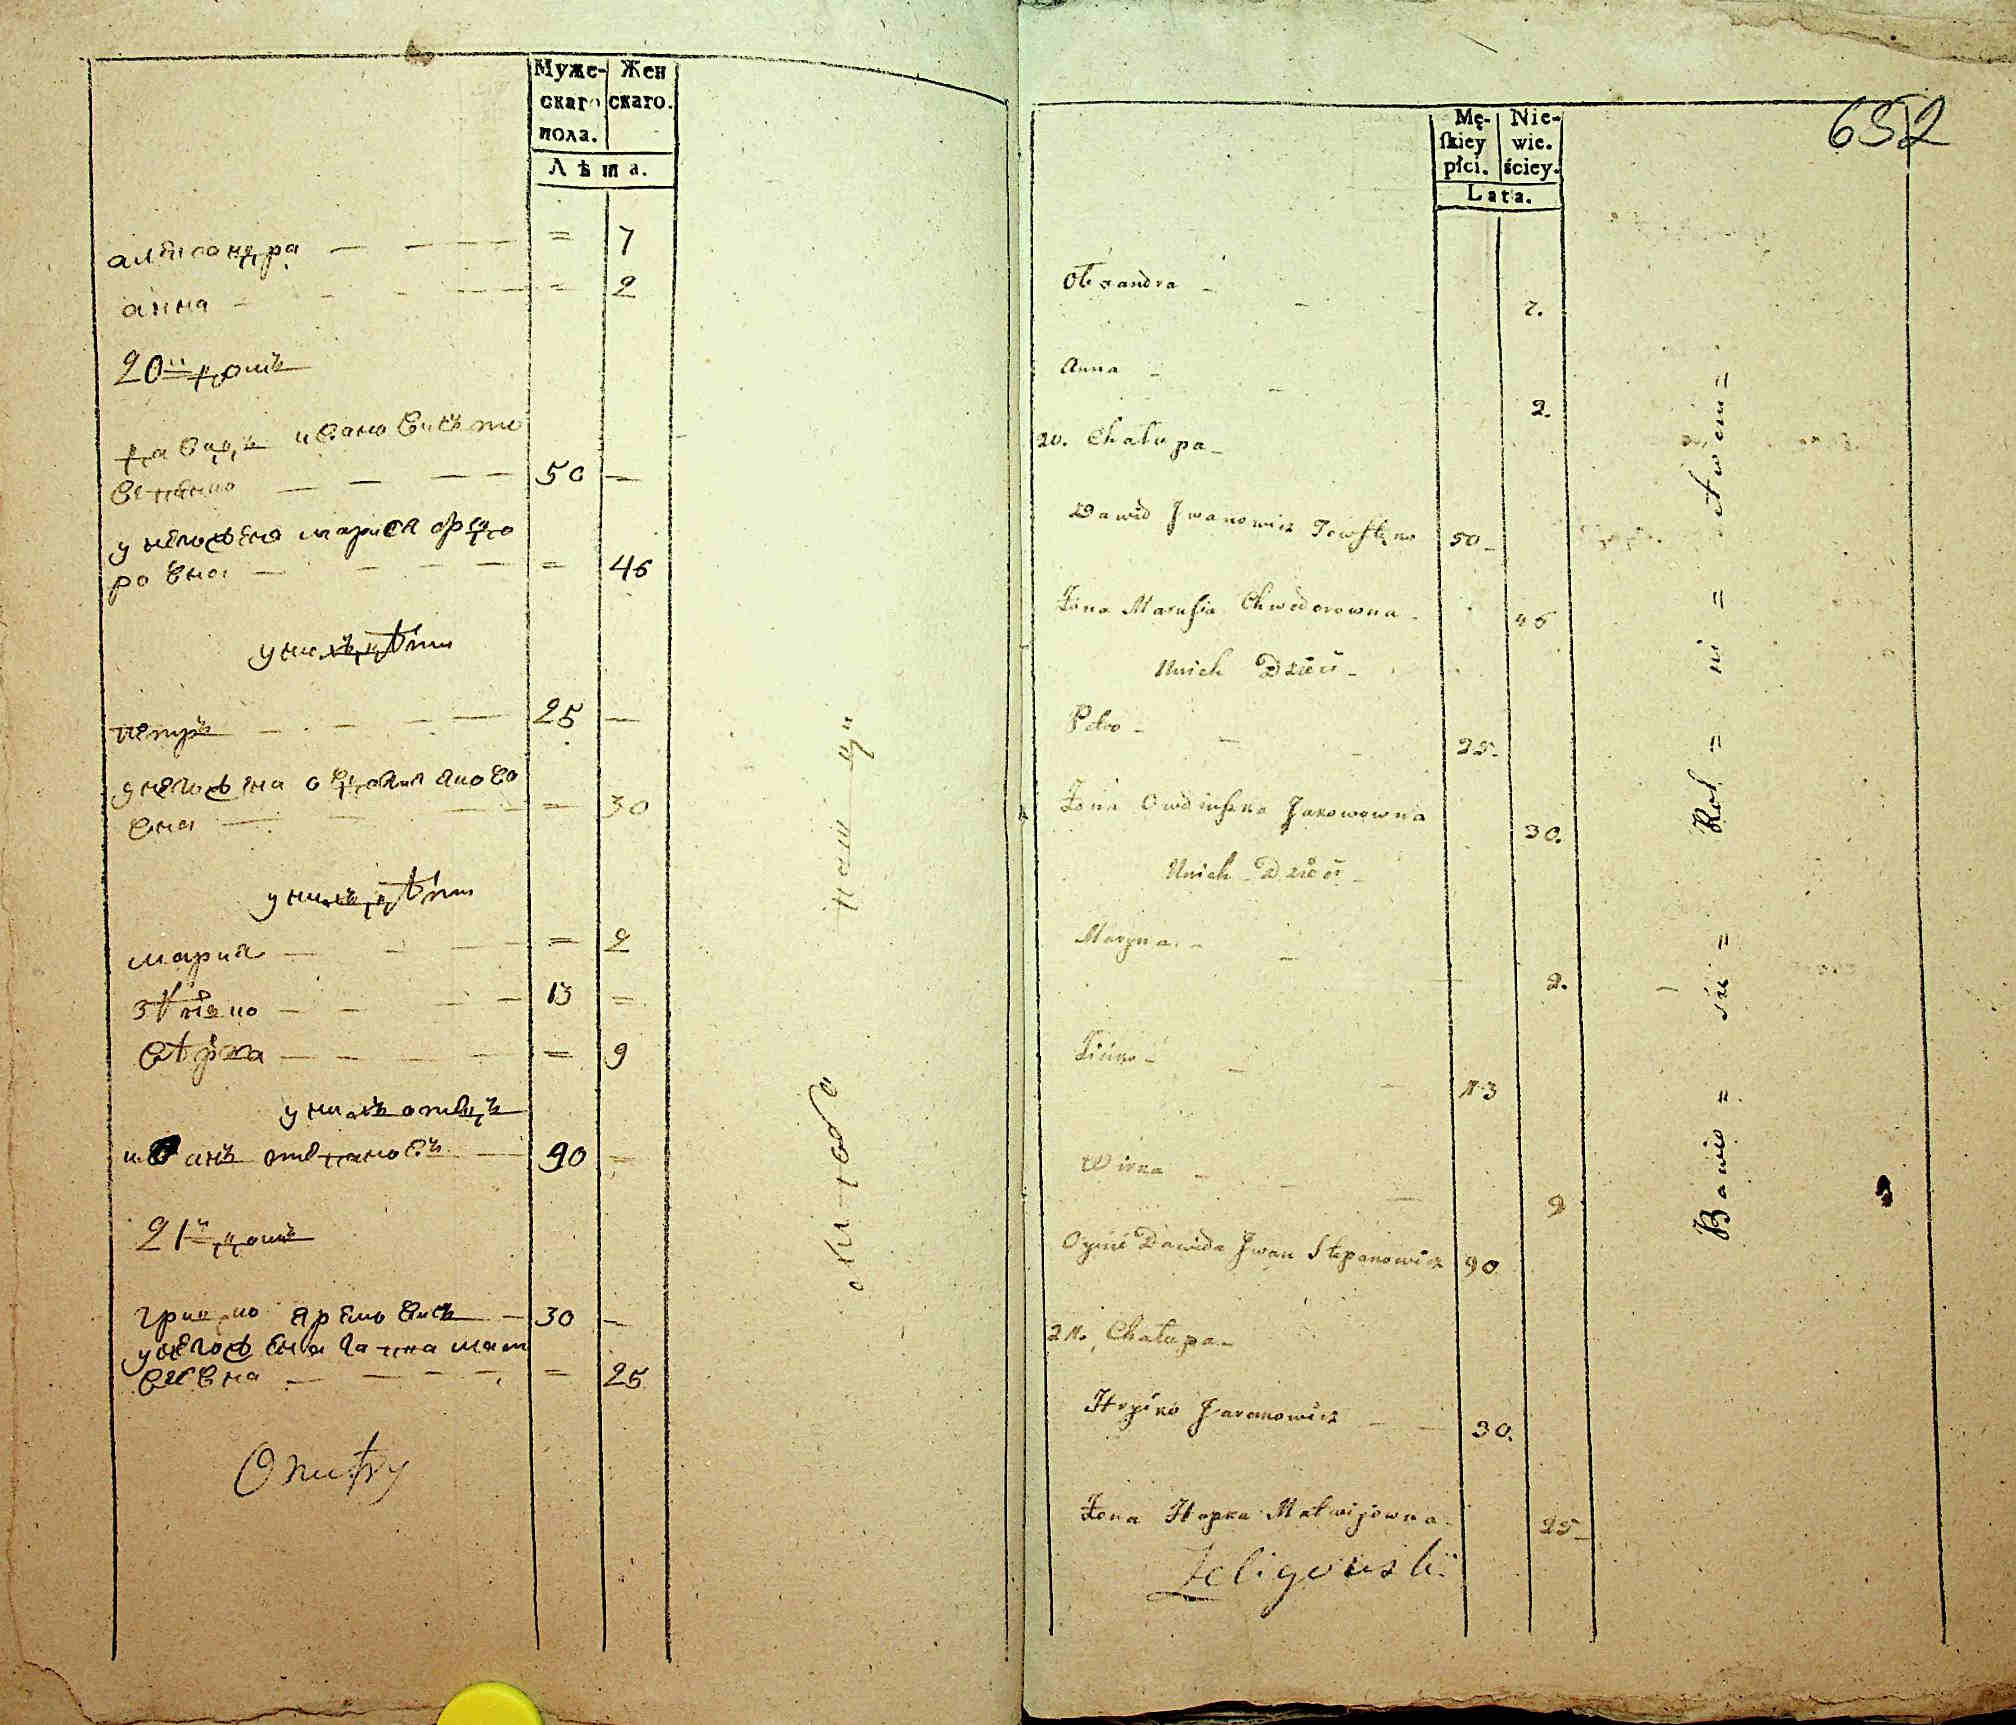 Муже-
скаго
пола.
Жен
скаго.
Лѣта.
александра — — — = 7
анна — — — = 2
20й домъ
давидъ ивановичъ тов
стенко — — — 50 —
у него жена марися федо
ровна — — — = 46
у нихъ дѣти
петръ — — — 25 —
у него жена овдюшка яково
вна — — — = 30
у нихъ дѣти
мария — — — = 2
зѣнько — — — 13 =
вѣрка — — — = 9
у нихъ отецъ
иванъ степановъ — 90 =
21й домъ
грицко яремовичъ — 30 —
у него жена гапка мат
веевна — — — = 25
652
Mę-
skiey
płci.
Nie-
wie.
ściey.
Lata.
Olexandra — — 7.
Anna — — 2.
20. Chałupa —
Dawid Jwanowicz Towstęno 50 —
Żona Marusia Chwedorowna — 46
Unich Dzieci —
Petro — — 25 —
Żona Owdiuszka Jakowowna 30.
Unich Dzieci —
Maryna — — 2.
Zinko — — 13
Wirka — — 9
Oyciec Dawida Jwan Stepanowicz 90
21. Chałupa —
Hrycko Jaremowicz — — 30.
Żona Hapka Matwijowna — 25 —
Żeligowski
Bawio = się = Rol = ni = ctwem =